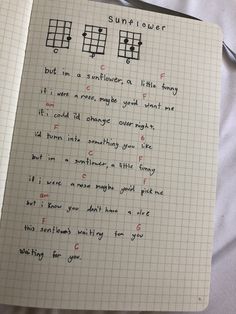 Sunflower
C F G
C F
but im a sunflower, a little funny
C F
if i were a rose, maybe you'd want me
am F
if i could i'd change overnight,
G
i'd turn into something you like
C F
but im a sunflower, a little funny
C F
if i were a rose maybe you'd pick me
am F
but i know you don't have a clue
F G
this sunflower's waiting for you
C
waiting for you.